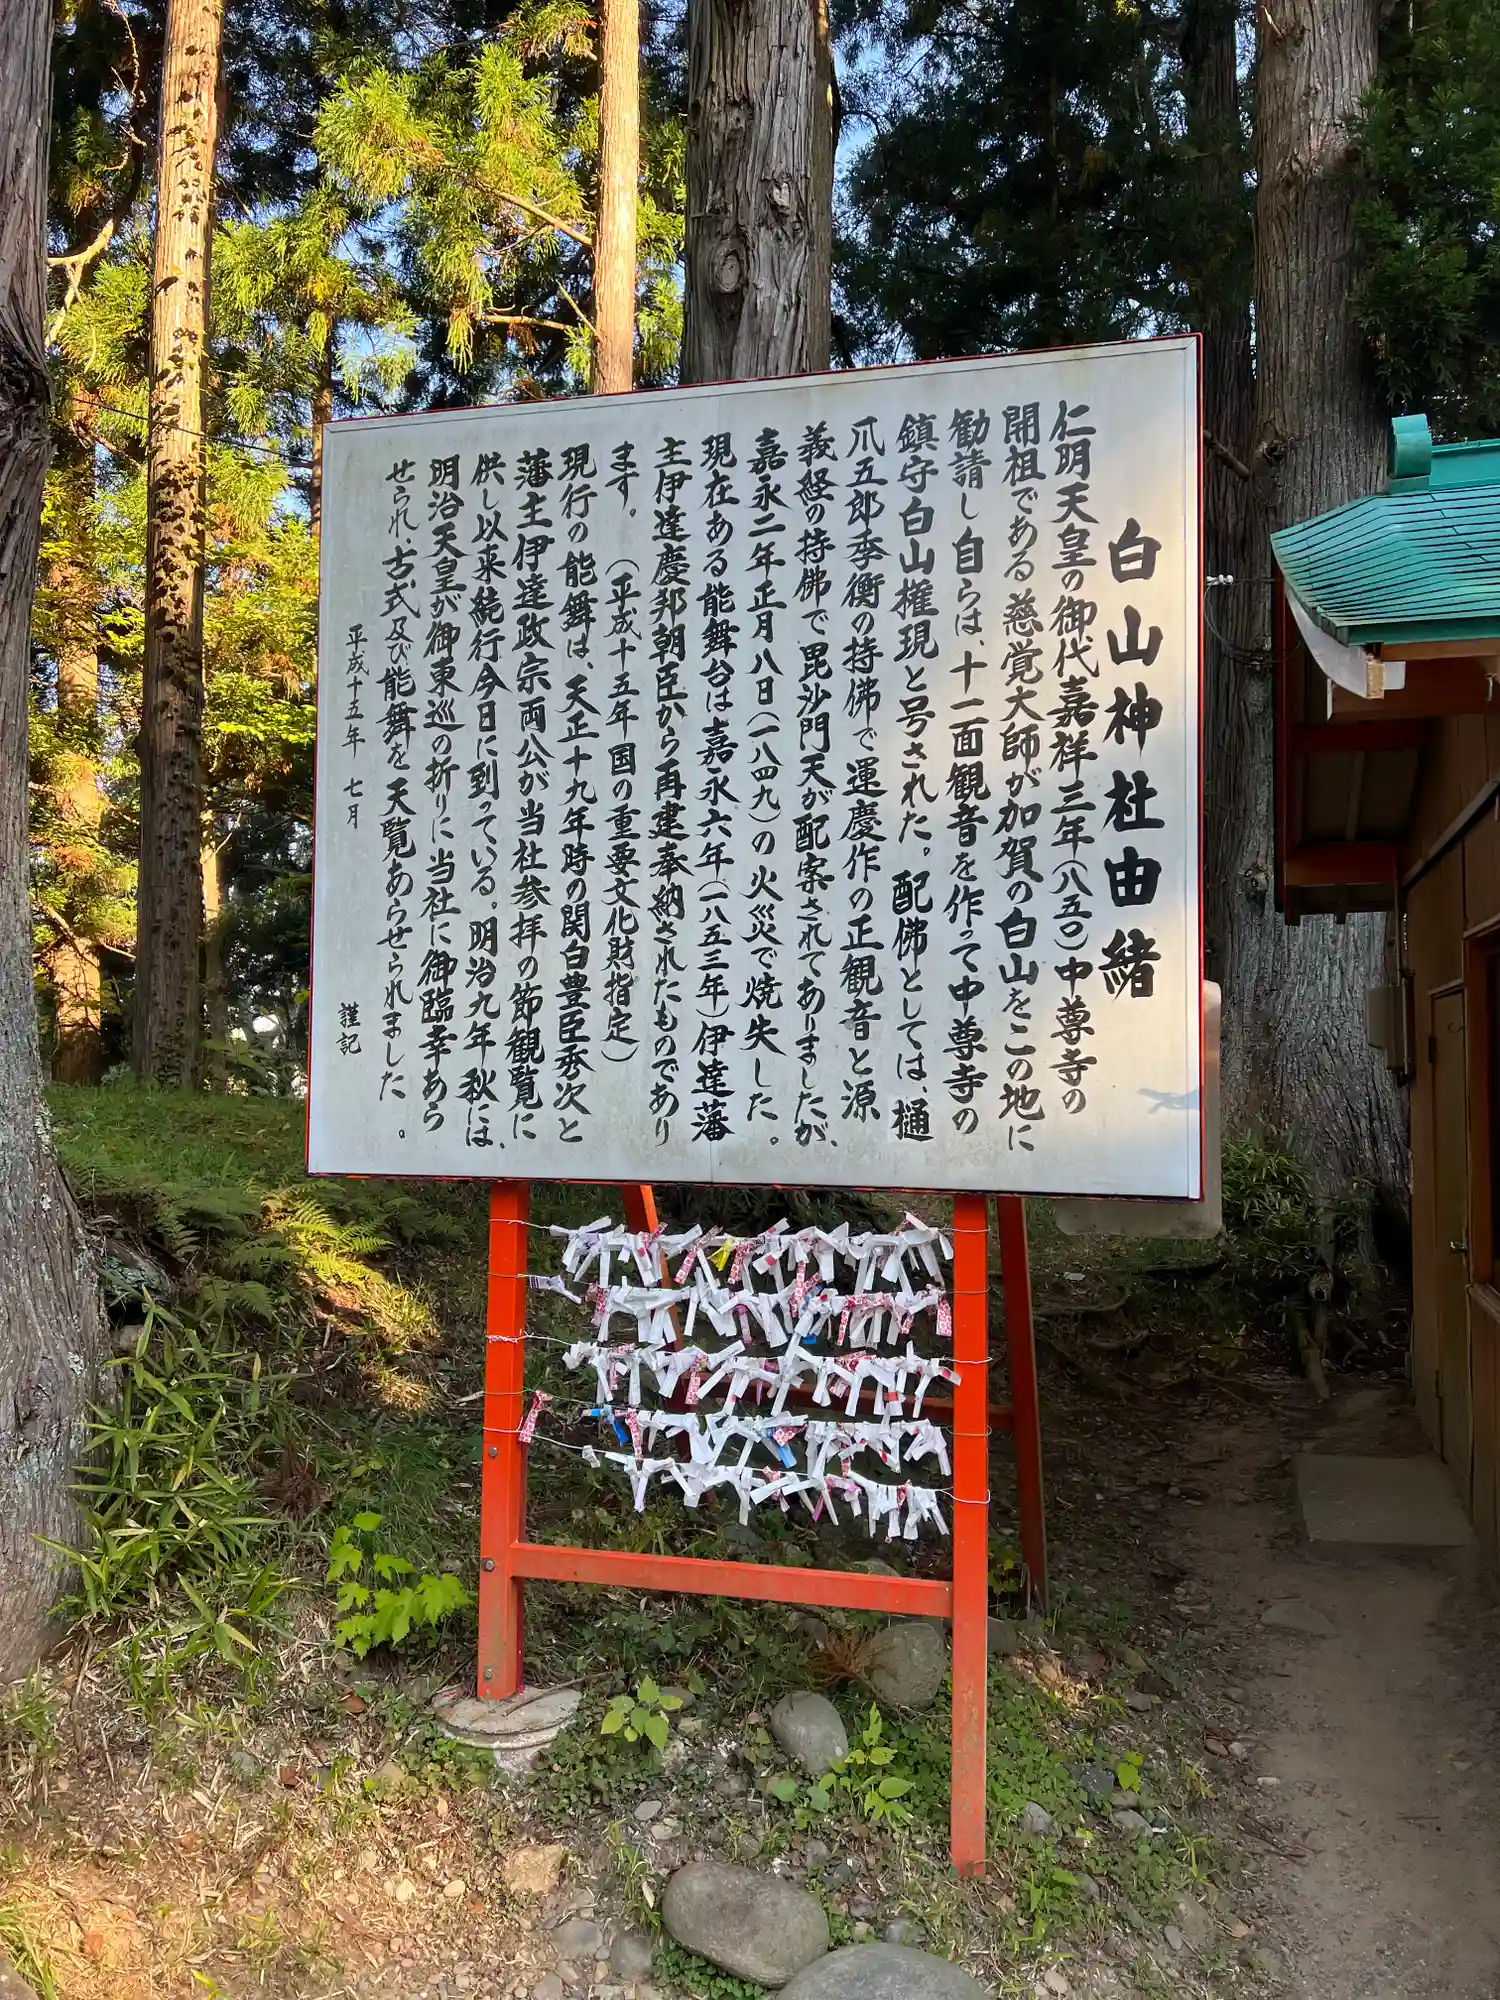 白山神社由緒
仁明天皇の御代嘉祥三年(八五〇)中尊寺の
開祖である慈覚大師が加賀の白山をこの地に
勧請し自らは、十一面観音を作って中尊寺の
鎮守白山権現と号された。配佛としては、樋
爪五郎季衡の持佛で運慶作の正観音と源
義経の持佛で毘沙門天が配案されてありましたが、
嘉永二年正月八日(一八四九)の火災で焼失した。
現在ある能舞台は嘉永六年(一八五三年)伊達藩
主伊達慶邦朝臣から再建奉納されたものであり
ます。(平成十五年国の重要文化財指定)
現行の能舞は、天正十九年時の関白豊臣秀次と
藩主伊達政宗両公が当社参拝の節観覧に
供し以来続行今日に到っている。明治九年秋には、
明治天皇が御東巡の折りに当社に御臨幸あら
せられ、古式及び能舞を天覧あらせられました。
平成十五年 七月 謹記